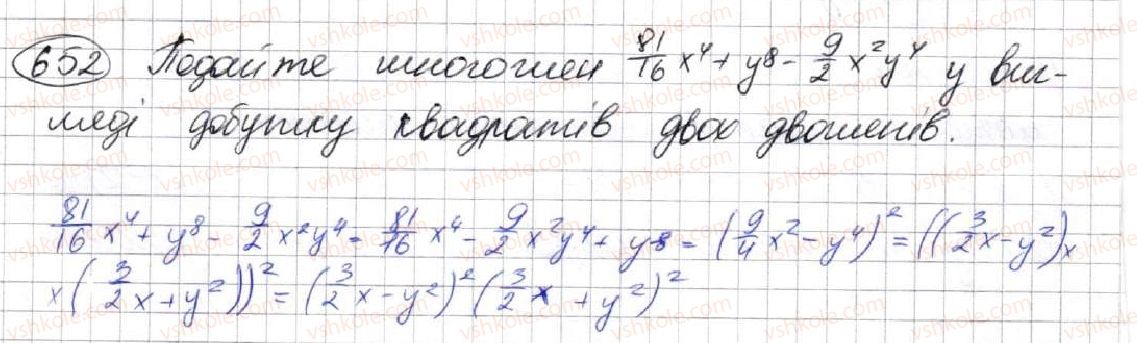 652 Подайте многочлен 81/16 x⁴ + y⁸ - 9/2 x² y⁴ у виг-
ляді добутку квадратів двох двочленів.
81/16 x⁴ + y⁸ - 9/2 x² y⁴ = 81/16 x⁴ - 9/2 x² y⁴ + y⁸ = (9/4 x² - y⁴)² = ((3/2 x - y²) ×
× (3/2 x + y²))² = (3/2 x - y²)² (3/2 x + y²)²